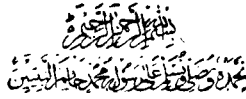 بسم الله الرحمن الرحيم
نحمده و نصلي و نسلم على رسوله محمد خاتم النبيين